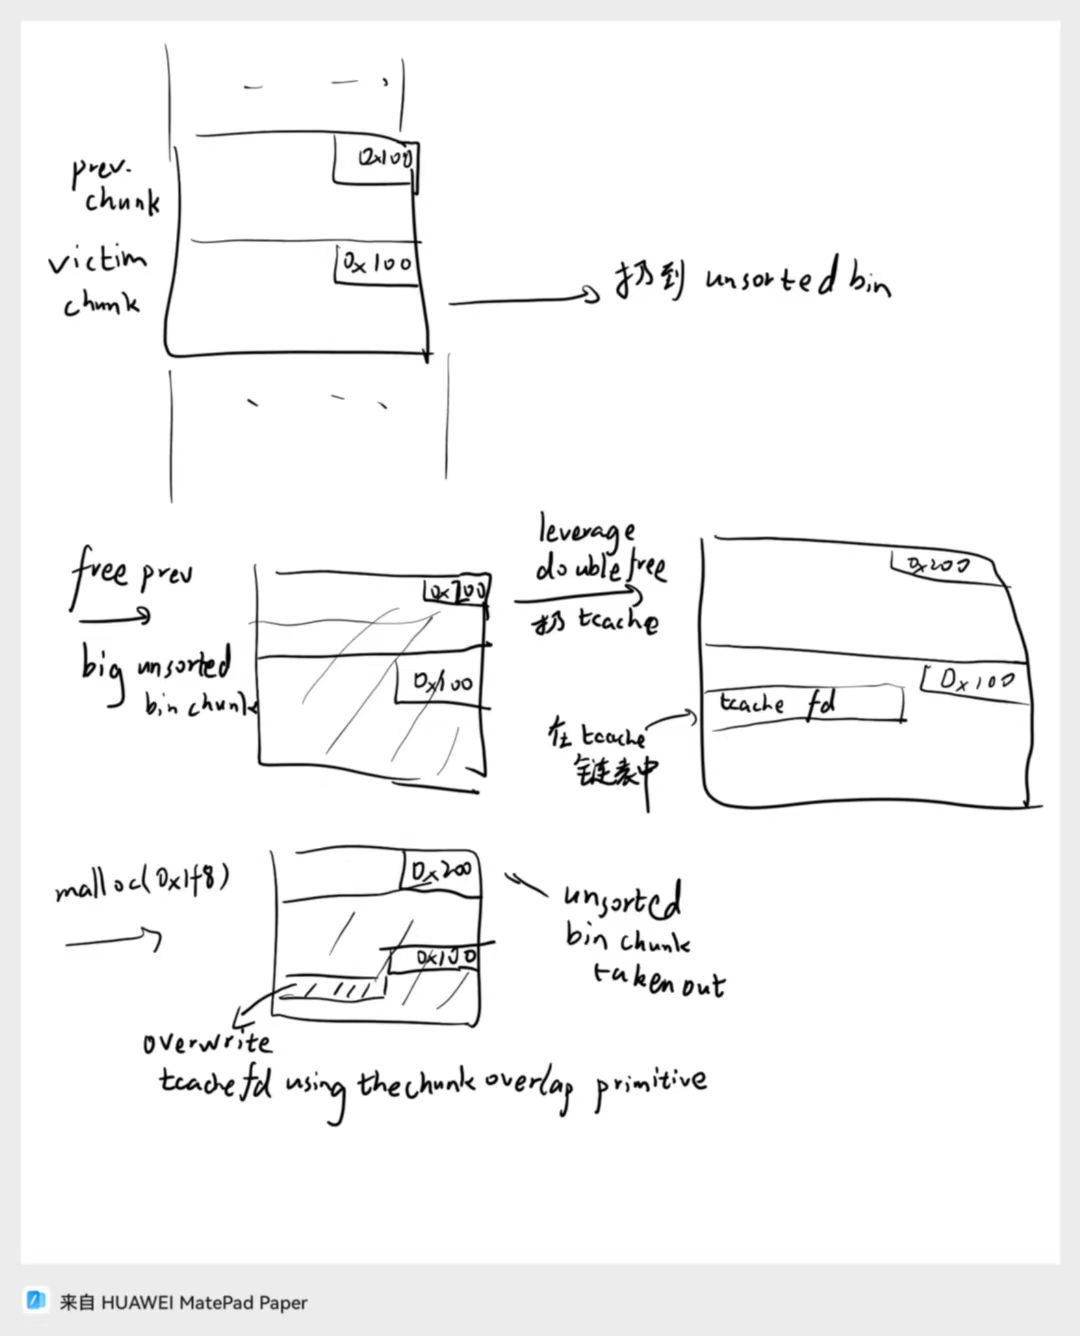 0x100
prev.
chunk
victim
chunk
0x100
扔到 unsorted bin
free prev
big unsorted
bin chunk
0x200
0x100
leverage
double free
扔 tcache
0x200
0x100
tcache fd
在 tcache
链表中
malloc(0x1f8)
0x200
0x100
unsorted
bin chunk
taken out
overwrite
tcache fd using the chunk overlap primitive
来自 HUAWEI MatePad Paper